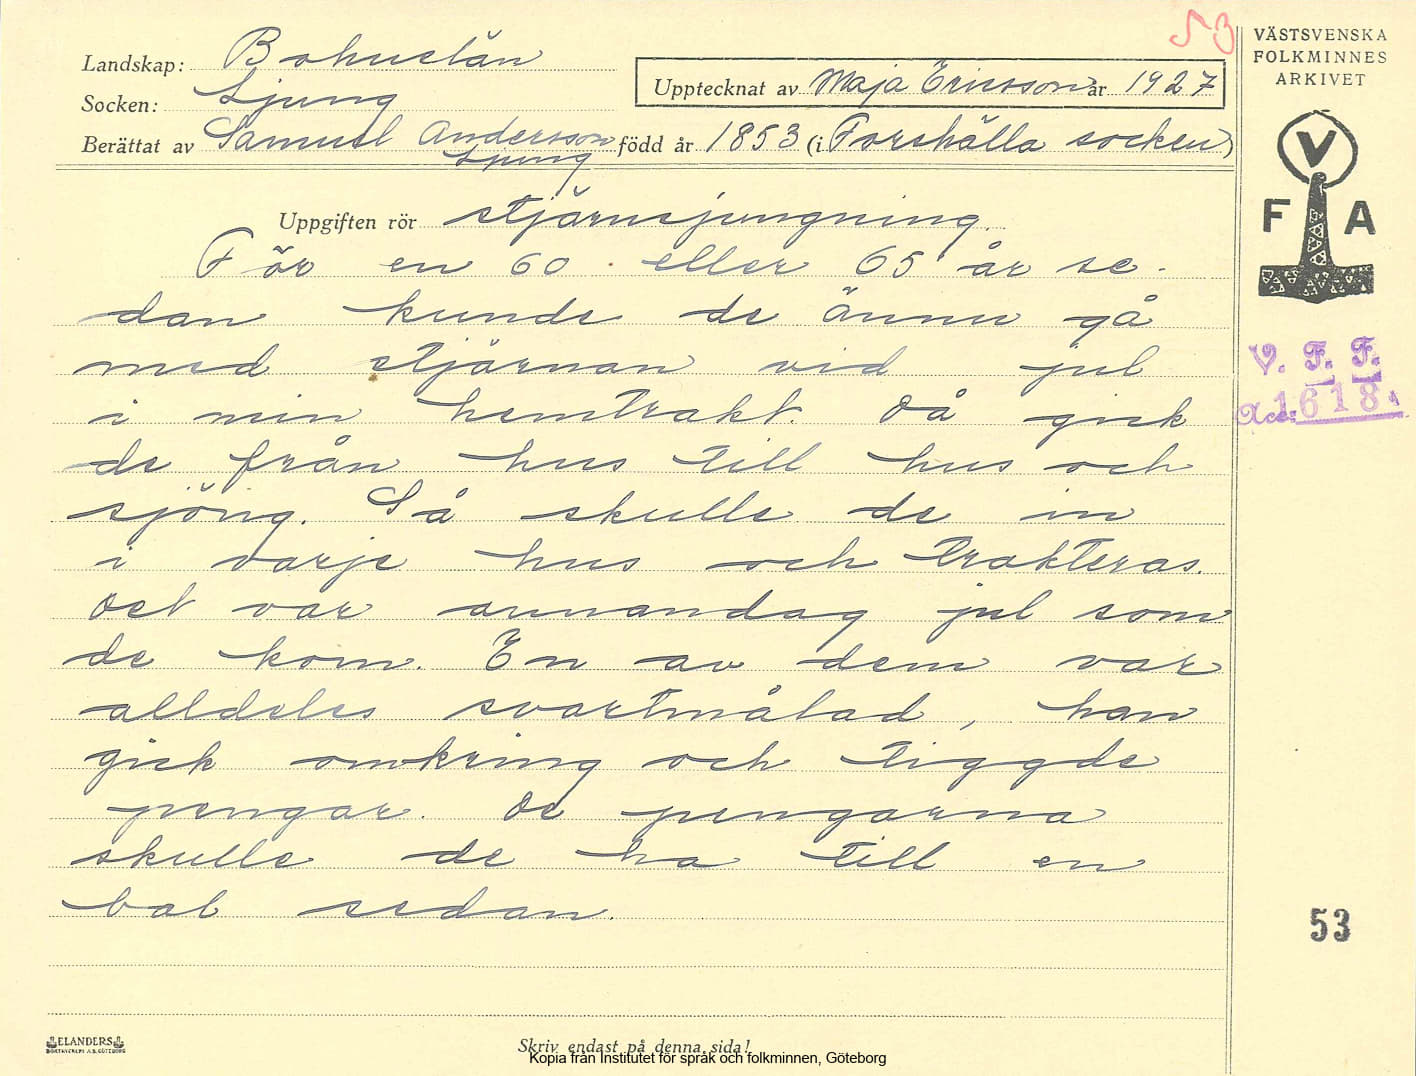 53
VÄSTSVENSKA
FOLKMINNES
ARKIVET
Landskap: Bohuslän
Socken: Ljung
Upptecknat av Maja Ericsson år 1927
Berättat av Samuel Andersson född år 1853 (i Forshälla socken)
Ljung
V
F A
Uppgiften rör stjärnsjungning.
För en 60 eller 65 år se-
dan kunde de ännu gå
med stjärnan vid jul
i min hemtrakt. Då gick
de från hus till hus och
sjöng. Så skulle de in
i varje hus och trakteras.
Det var annandag jul som
de kom. En av dem var
alldeles svartmålad, han
gick omkring och tiggde
pengar. De pengarna
skulle de ha till en
bal sedan.
V. F. F.
Acc. 1618
53
ELANDERS
BOKTRYCKERI A.B. GÖTEBORG
Skriv endast på denna sida!
Kopia från Institutet för språk och folkminnen, Göteborg